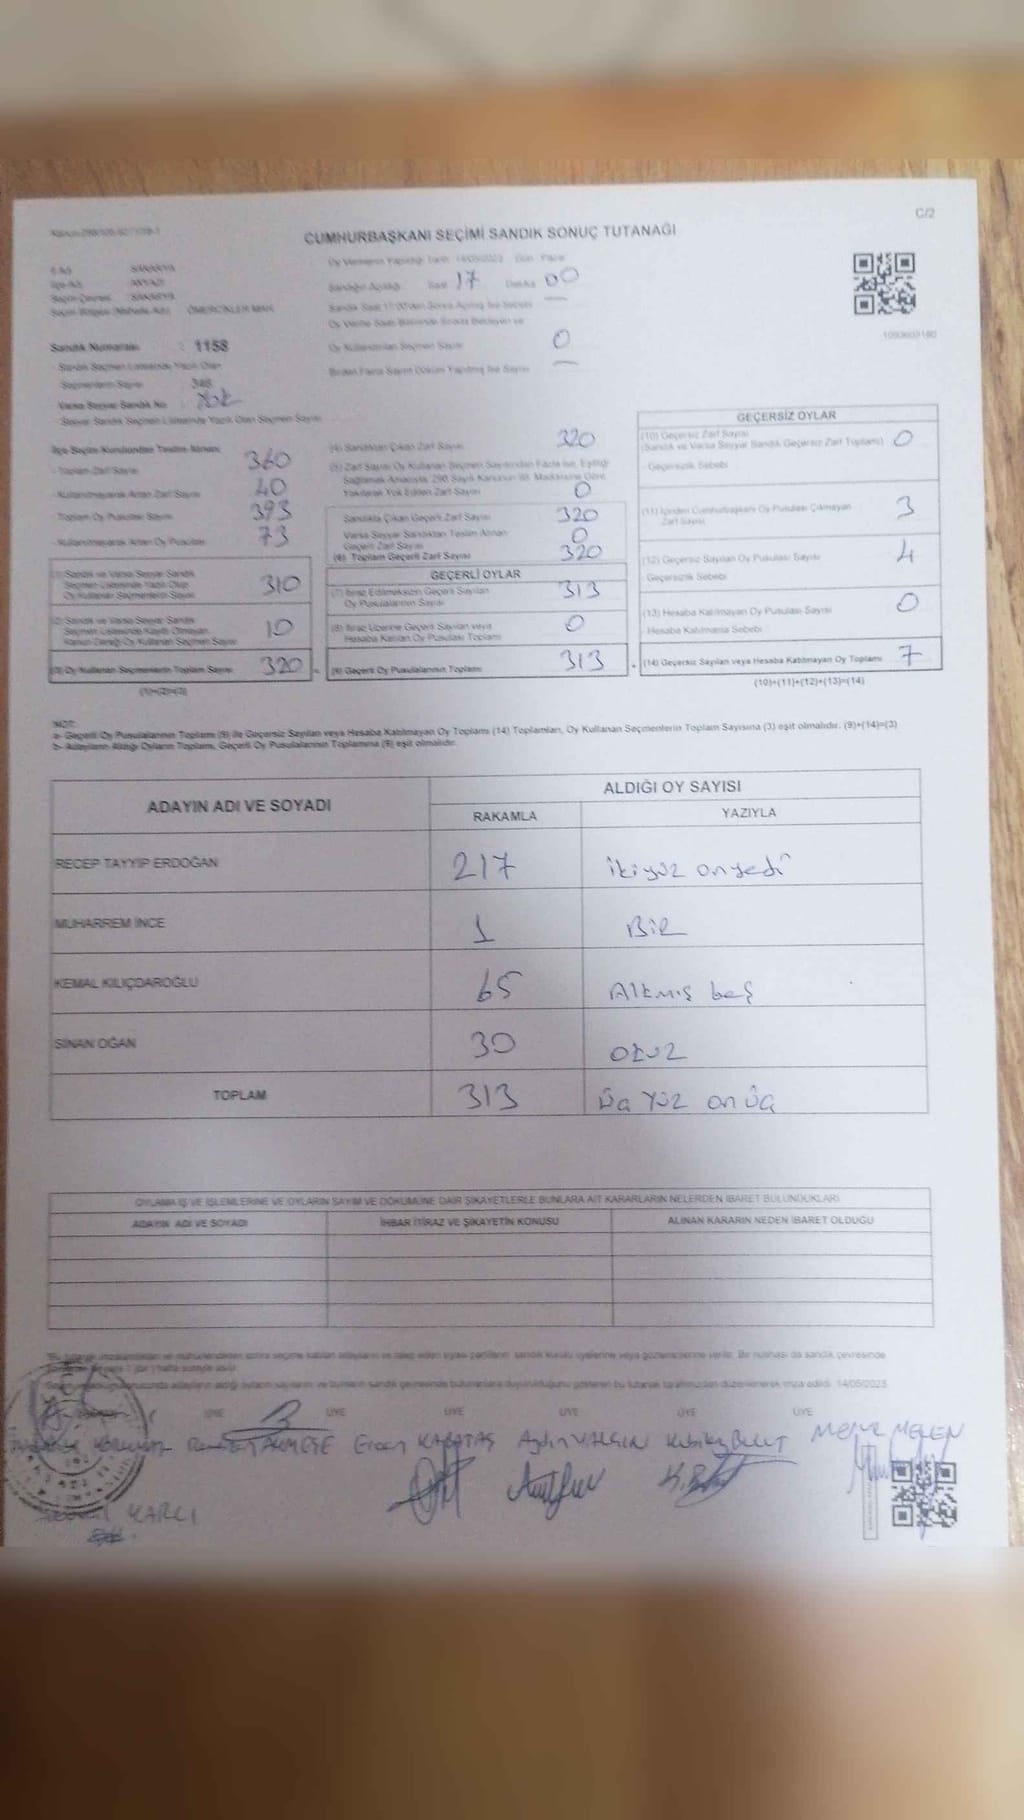 C/2
CUMHURBAŞKANI SEÇİMİ SANDIK SONUÇ TUTANAĞI
Oy Vermenin Yapıldığı Tarih 14/05/2023 Gün Pazar
İl Adı SAKARYA
İlçe Adı AKYAZI
Seçim Çevresi SAKARYA
Seçim Bölgesi (Mahalle Adı) ÖMERCİKLER MAH.
Sandığın Açıldığı Saat 17 Dakika 00
Sandık Saat 17:00'den Sonra Açılmış İse Sebebi —
Oy Verme Saati Bitiminde Sırada Bekleyen ve
Oy Kullandırılan Seçmen Sayısı 0
Birden Fazla Sayım Döküm Yapılmış İse Sayısı —
Sandık Numarası : 1158
Sandık Seçmen Listesinde Yazılı Olan
Seçmenlerin Sayısı 348
Varsa Seyyar Sandık No : Yok
Seyyar Sandık Seçmen Listesinde Yazılı Olan Seçmen Sayısı
İlçe Seçim Kurulundan Teslim Alınan
- Toplam Zarf Sayısı 360
- Kullanılmayarak Artan Zarf Sayısı 40
- Toplam Oy Pusulası Sayısı 393
- Kullanılmayarak Artan Oy Pusulası 73
(1) Sandık ve Varsa Seyyar Sandık
Seçmen Listesinde Yazılı Olup
Oy Kullanan Seçmenlerin Sayısı 310
(2) Sandık ve Varsa Seyyar Sandık
Seçmen Listesinde Kayıtlı Olmayan
Kanun Gereği Oy Kullanan Seçmen Sayısı 10
(3) Oy Kullanan Seçmenlerin Toplam Sayısı 320 =
(1)+(2)=(3)
(4) Sandıktan Çıkan Zarf Sayısı 320
(5) Zarf Sayısı Oy Kullanan Seçmen Sayısından Fazla İse, Eşitliği
Sağlamak Amacıyla 298 Sayılı Kanunun 98. Maddesine Göre
Yakılarak Yok Edilen Zarf Sayısı 0
Sandıkta Çıkan Geçerli Zarf Sayısı 320
Varsa Seyyar Sandıktan Teslim Alınan
Geçerli Zarf Sayısı 0
(6) Toplam Geçerli Zarf Sayısı 320
GEÇERLİ OYLAR
(7) İtiraz Edilmeksizin Geçerli Sayılan
Oy Pusulalarının Sayısı 313
(8) İtiraz Üzerine Geçerli Sayılan veya
Hesaba Katılan Oy Pusulası Toplamı 0
(9) Geçerli Oy Pusulalarının Toplamı 313 +
GEÇERSİZ OYLAR
(10) Geçersiz Zarf Sayısı
(Sandık ve Varsa Seyyar Sandık Geçersiz Zarf Toplamı) 0
- Geçersizlik Sebebi
(11) İçinden Cumhurbaşkanı Oy Pusulası Çıkmayan
Zarf Sayısı 3
(12) Geçersiz Sayılan Oy Pusulası Sayısı 4
- Geçersizlik Sebebi
(13) Hesaba Katılmayan Oy Pusulası Sayısı 0
- Hesaba Katılmama Sebebi
(14) Geçersiz Sayılan veya Hesaba Katılmayan Oy Toplamı 7
(10)+(11)+(12)+(13)=(14)
NOT:
a- Geçerli Oy Pusulalarının Toplamı (9) ile Geçersiz Sayılan veya Hesaba Katılmayan Oy Toplamı (14) Toplamları, Oy Kullanan Seçmenlerin Toplam Sayısına (3) eşit olmalıdır. (9)+(14)=(3)
b- Adayların Aldığı Oyların Toplamı, Geçerli Oy Pusulalarının Toplamına (9) eşit olmalıdır.
ADAYIN ADI VE SOYADI ALDIĞI OY SAYISI
RAKAMLA YAZIYLA
RECEP TAYYİP ERDOĞAN 217 ikiyüz onyedi
MUHARREM İNCE 1 BİR
KEMAL KILIÇDAROĞLU 65 Altmış beş
SİNAN OĞAN 30 otuz
TOPLAM 313 Üç Yüz on üç
OYLAMA İŞ VE İŞLEMLERİNE VE OYLARIN SAYIM VE DÖKÜMÜNE DAİR ŞİKAYETLERLE BUNLARA AİT KARARLARIN NELERDEN İBARET BULUNDUKLARI
ADAYIN ADI VE SOYADI İHBAR İTİRAZ VE ŞİKAYETİN KONUSU ALINAN KARARIN NEDEN İBARET OLDUĞU
ÜYE ÜYE ÜYE ÜYE ÜYE ÜYE
Ercan KABATAŞ Aydın YALÇIN
KARCI